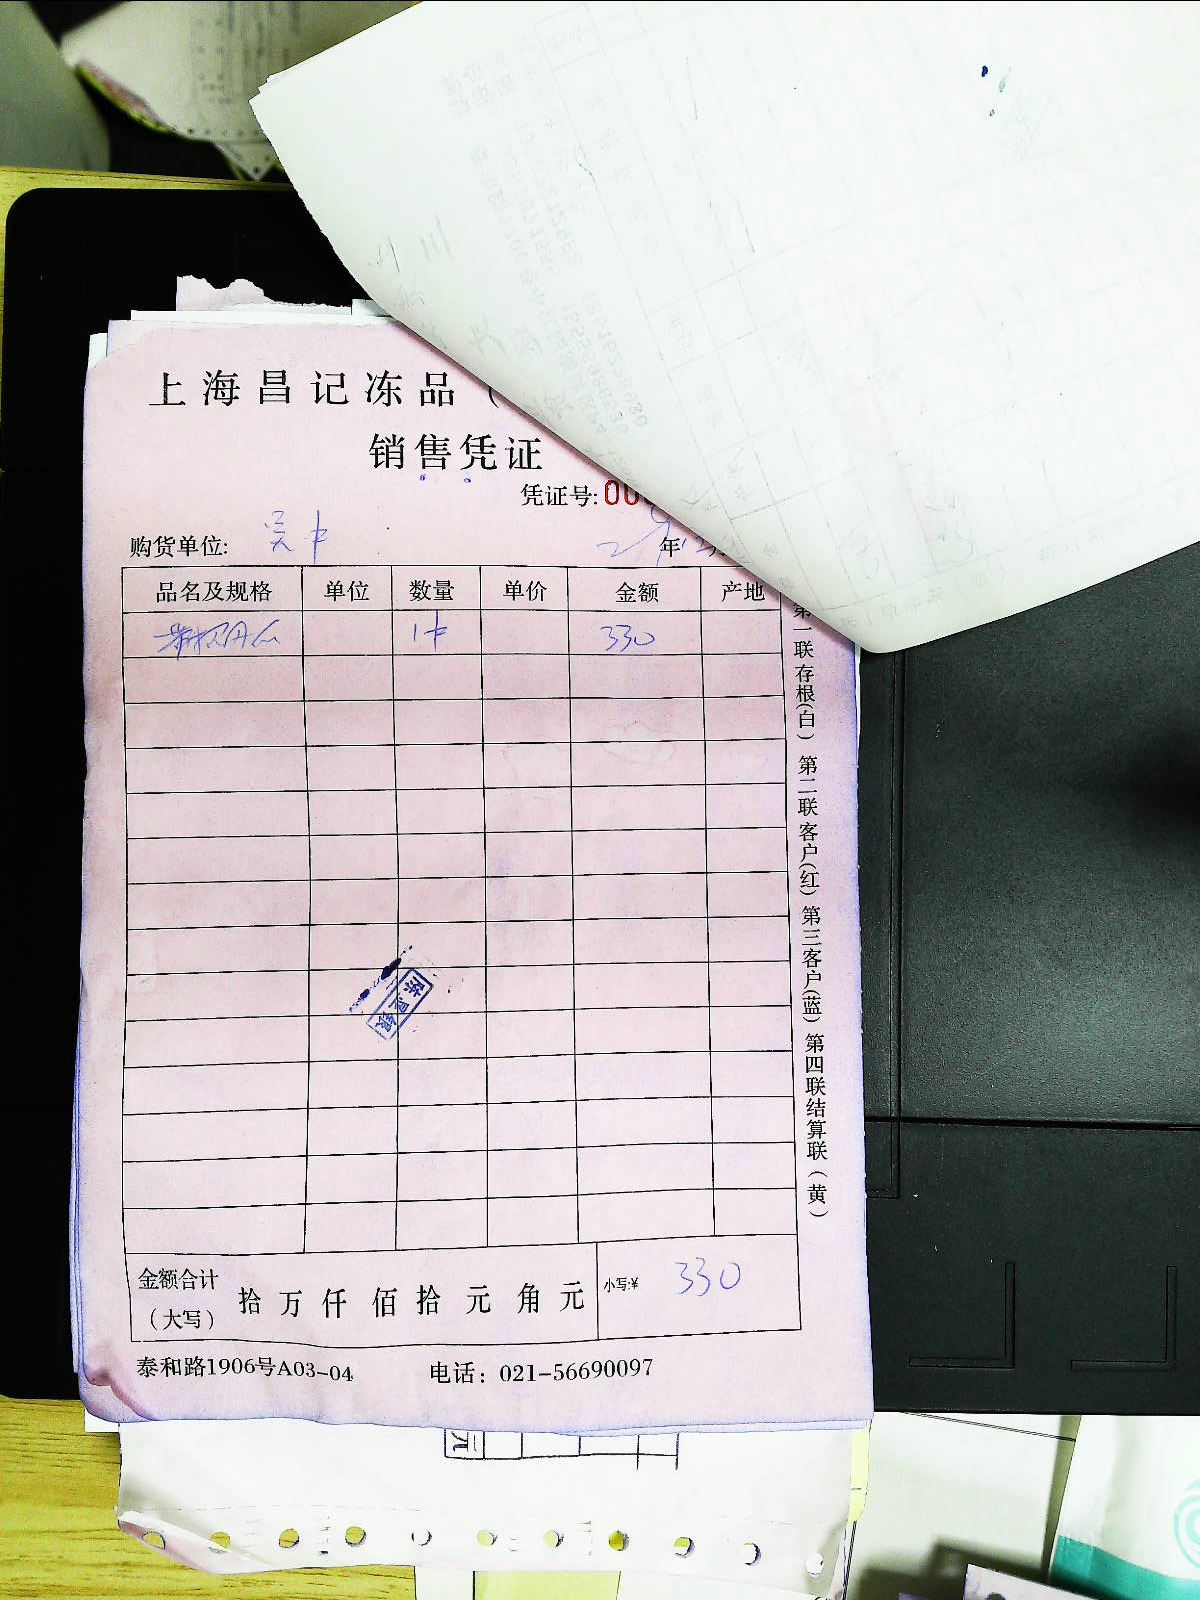 上海昌记冻品（
销售凭证
凭证号:00
购货单位: 吴中 年
品名及规格 单位 数量 单价 金额 产地
1卡 330
金额合计（大写） 拾 万 仟 佰 拾 元 角 元 小写:¥ 330
泰和路1906号A03-04 电话：021-56690097
第一联存根(白) 第二联客户(红) 第三客户(蓝) 第四联结算联（黄）
元